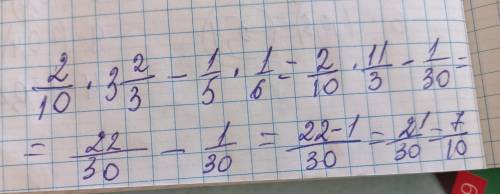 2/10 · 3 2/3 - 1/5 · 1/6 = 2/10 · 11/3 - 1/30 =
= 22/30 - 1/30 = 22-1/30 = 21/30 = 7/10